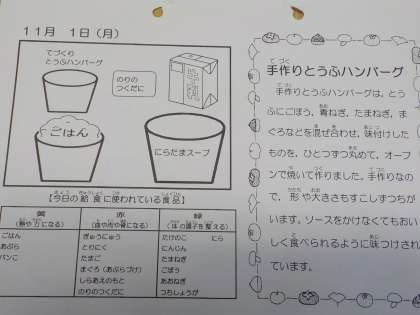 11月 1日(月)
てづくり
とうふハンバーグ
のりの
つくだに
ごはん
にらたまスープ
【今日の給食に使われている食品】
黄
(熱や力になる)
赤
(血や肉や骨になる)
緑
(体の調子を整える)
ごはん
あぶら
パンこ
ぎゅうにゅう
とりにく
たまご
まぐろ(あぶらづけ)
しらあえのもと
のりのつくだに
たけのこ にら
にんじん
たまねぎ
ごぼう
あおねぎ
つちしょうが
手作りとうふハンバーグ
手作りとうふハンバーグは、とう
ふにごぼう、青ねぎ、たまねぎ、ま
ぐろなどを混ぜ合わせ、味付けした
ものを、ひとつずつ丸めて、オーブ
ンで焼いて作りました。手作りなの
で、形や大きさもすこしずつちが
います。ソースをかけなくてもおい
しく食べられるように味つけされ
ています。